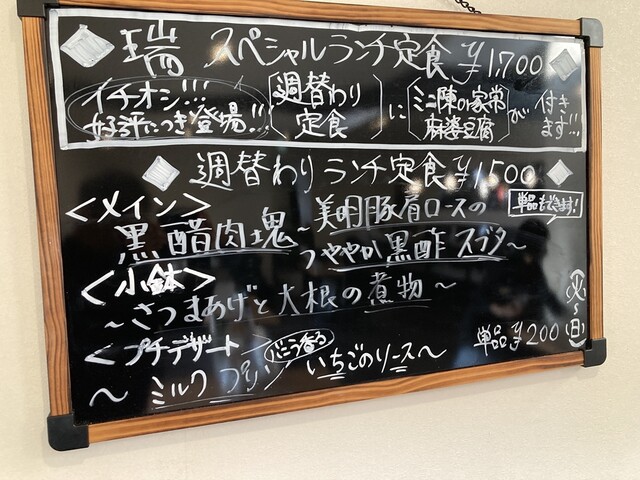 瑞 スペシャルランチ定食 ¥1,700
イチオシ!!!
好評につき登場!!!
週替わり
定食
に
ミニ陳の家常
麻婆豆腐
が
付き
ます!!
週替わり ランチ定食 ¥1,500
<メイン>
単品もできます!
黒醋肉塊 ~美明豚肩ロースの
つややか黒酢スブタ~
<小鉢>
~さつまあげと大根の煮物~
(火~日)
<プチデザート>
単品¥200
バニラ香る
~ミルクプリン いちごのソース~